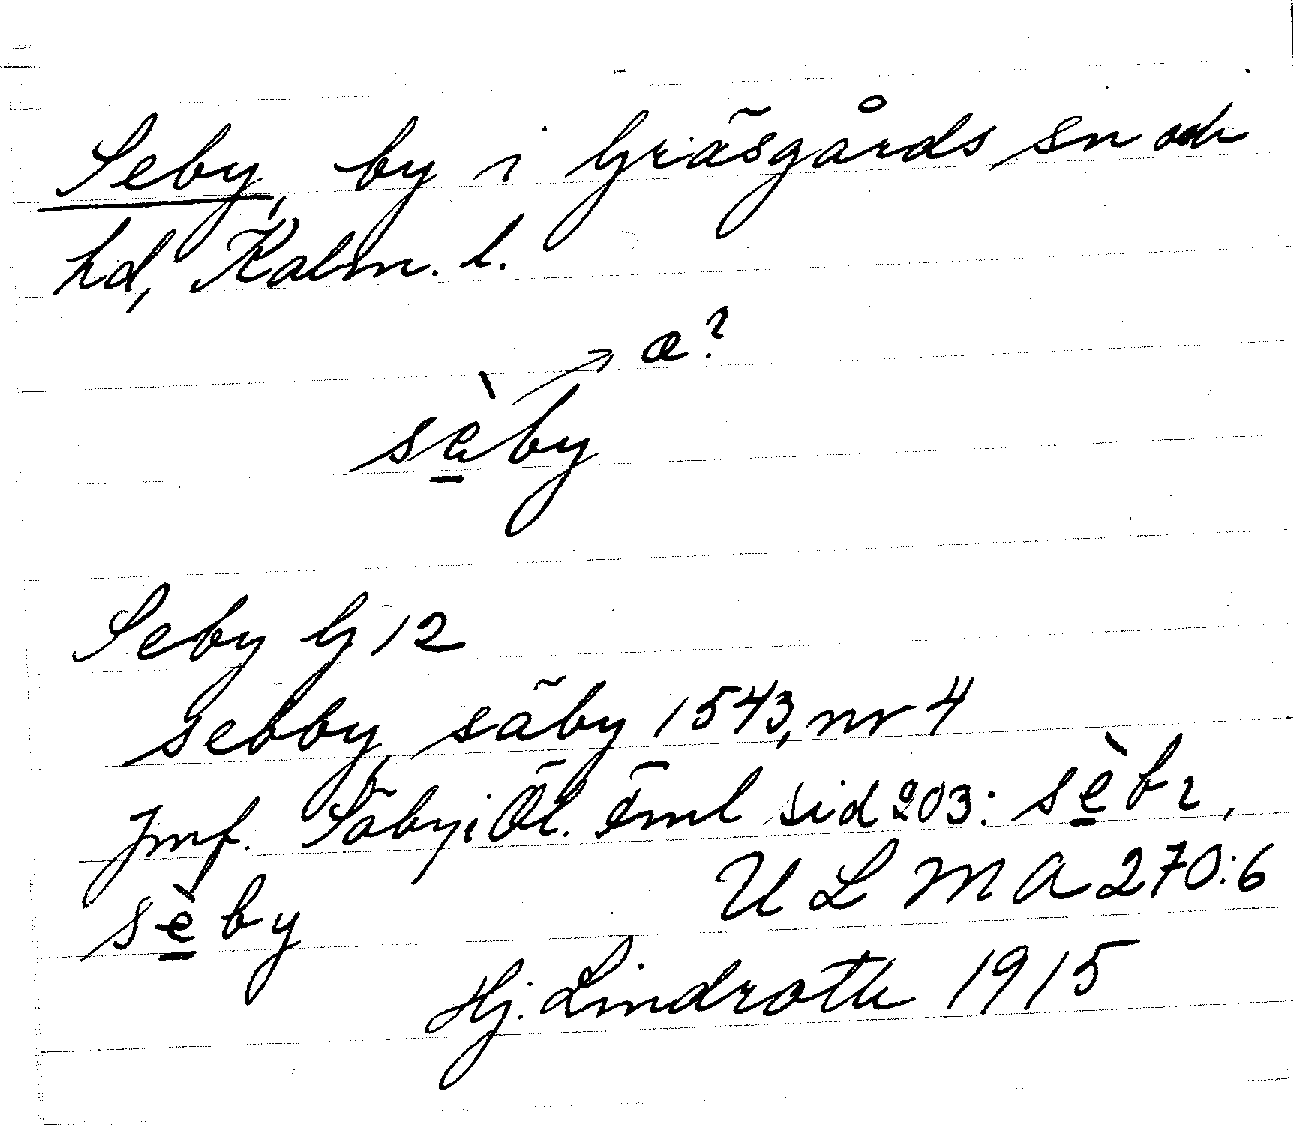 Seby, by i Gräsgårds sn och
hd, Kalm. l.
a?
sèby
Seby G 12
sebby, säby 1543, nr 4
Jmf. Säby i Öl. Åml sid 203: sèbı,
sèby
ULMA 270:6
Hj. Lindroth 1915